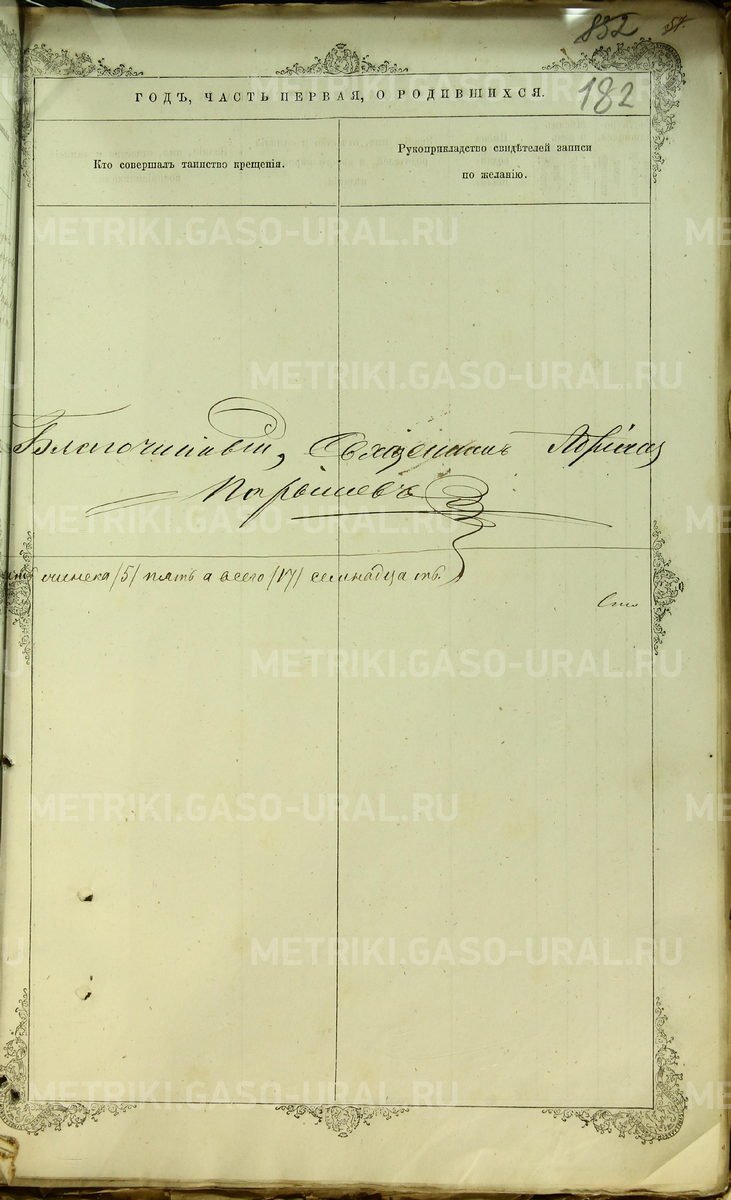 832 54.
182
ГОДЪ, ЧАСТЬ ПЕРВАЯ, О РОДИВШИХСЯ.
Кто совершалъ таинство крещенія.
Рукоприкладство свидѣтелей записи
по желанію.
METRIKI.GASO-URAL.RU
Благочинный, Священникъ
/5/ пять а всего /17/ семнадцать.